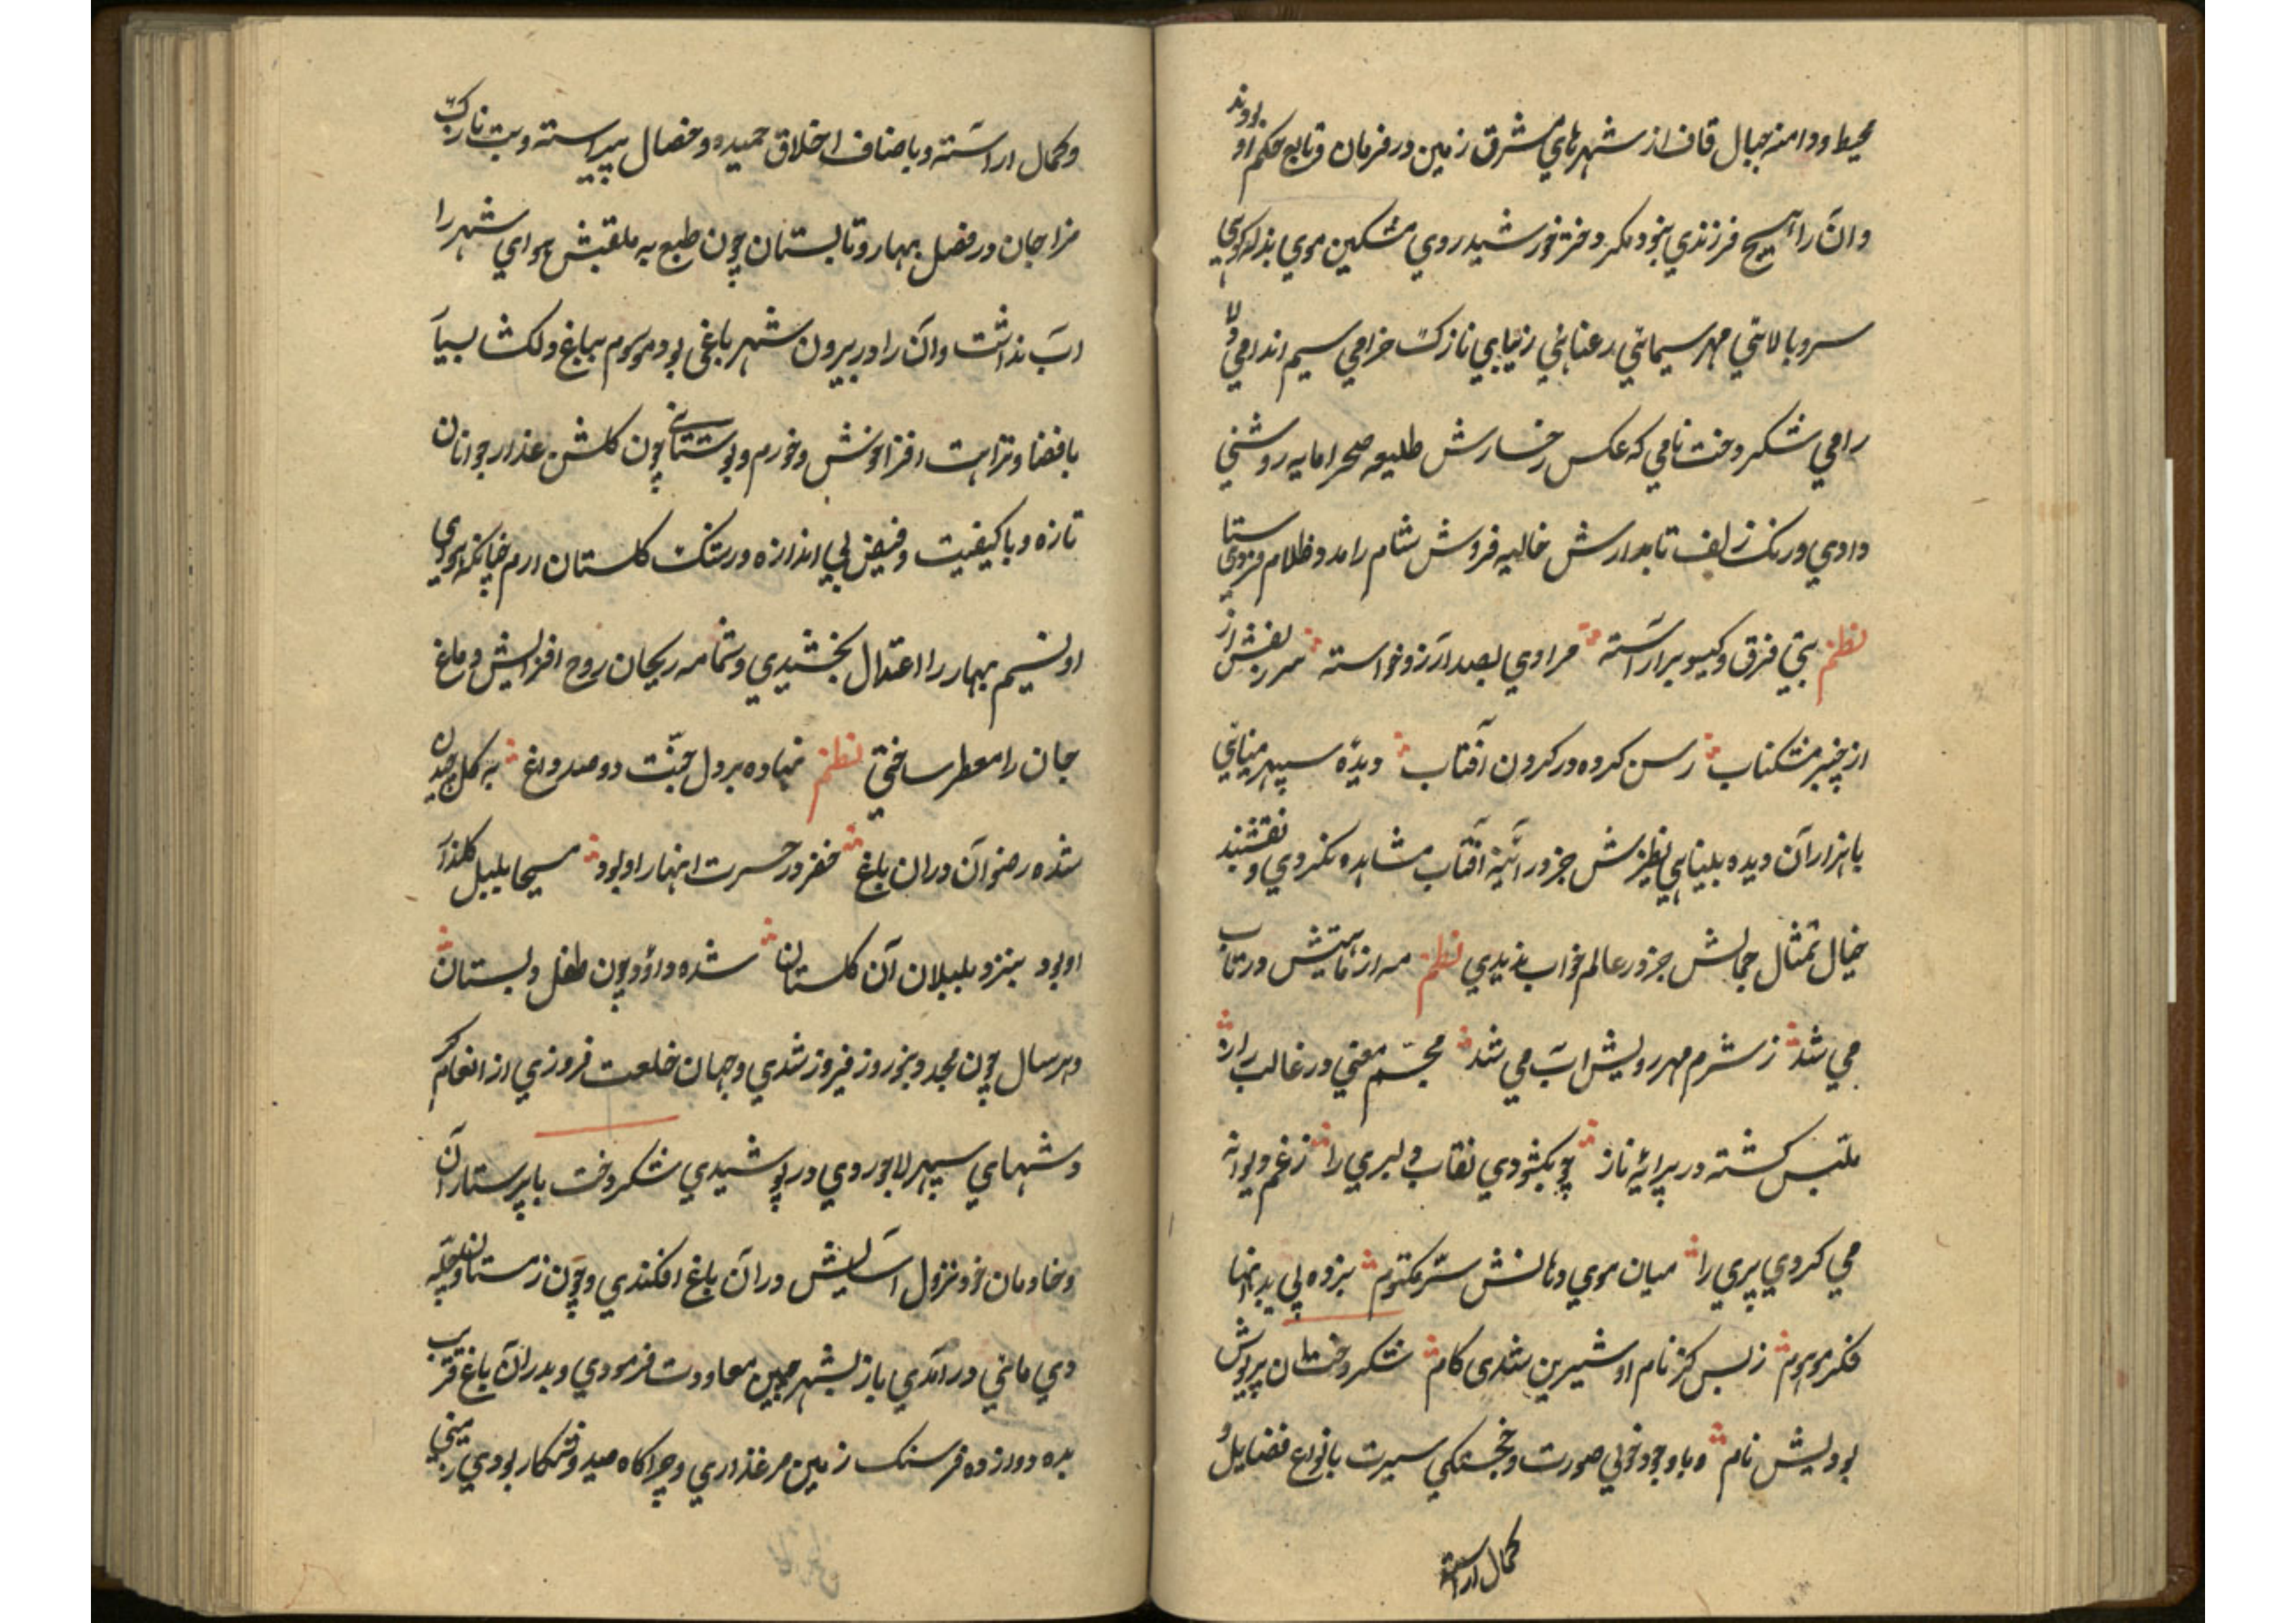 محیط ودامنه جبال قاف از شهرهای مشرق زمین در فرمان و تابع حکم او بودند
وآن را هیچ فرزندی نبود مگر دختر خورشید روی مشکین موی بذله کوی
سرو بالائی مهر سیمائی رعنائی زیبایی نازک خرامی سیم اندامی دلا
رامی شکر دخت نامی که عکس رخسارش طلیعه صحرا مایه روشنی
دادی ورنک زلف تابدارش غالیه فروش شام را مدد ظلام فرستادی
نظم بتی فرق وکیسو برآراسته مرادی بصد آرزو خواسته سر زلفش از
از چنبر مشکناب رسن کرده در کردن آفتاب دیدهٔ سپهر مینائی
با هزاران دیده بینایی نظیرش جز در آئینه آفتاب مشاهده نکردی ونقشبند
خیال تمثال جمالش جز در عالم خواب ندیدی نظم مه از تابش در تاب
می شد ز شرم مهر رویش آب می شد مجسم معنی در غالب راز
ملتبس کشته در پیرایهٔ ناز چو بکشودی نقاب دلبری را ز غم دیوانه
می کردی پری را میان موی دهانش سرّ مکتوم نبرده پی بد انها
فکر موهوم ز بس کز نام او شیرین شدی کام شکر دخت پریوش
بودیش نام وبا وجود خوبی صورت وخجستکی سیرت بانواع فضایل و
کمال اراسته
وکمال اراسته وباصناف اخلاق حمیده وخصال پیراسته وبت نازک
مزاجان در فصل بهار وتابستان چون طبع به ملقبش هوای شهر را
اب نداشت وآن را در بیرون شهر باغی بود موسوم بباغ دلکشا بسیار
با فضا ونزاهت افزا خوش وخورم وبوستانی چون کلشن عذار جوانان
تازه وبا کیفیت وفیض بی اندازه ورشک کلستان ارم چنانکه هوای
او نسیم بهار را اعتدال بخشیدی وشمامه ریحان روح افزایش دماغ
جان را معطر ساختی نظم نهاده بر دل جنّت دو صد داغ به کل چیدن
شده رضوان دران باغ خضر در حسرت انهار او بود مسیحا بلبل کلزار
او بود بنزد بلبلان آن کلستان شده داوٗد چون طفل دبستان
وهر سال چون مجد ونوروز فیروز شدی وجهان خلعت فروزی از انعام
وشبهای سپهر لاجوردی در پوشیدی شکر دخت با پرستاران
وخادمان خود نزول آسایش در آن باغ افکندی وچون زمستان وچله
دی مانی در آمدی باز بشهر چین معاودت فرمودی وبدران باغ قریب
بده دوازده فرسنک زمین مرغذاری وچراکاه صید وشکار بودی زمینی